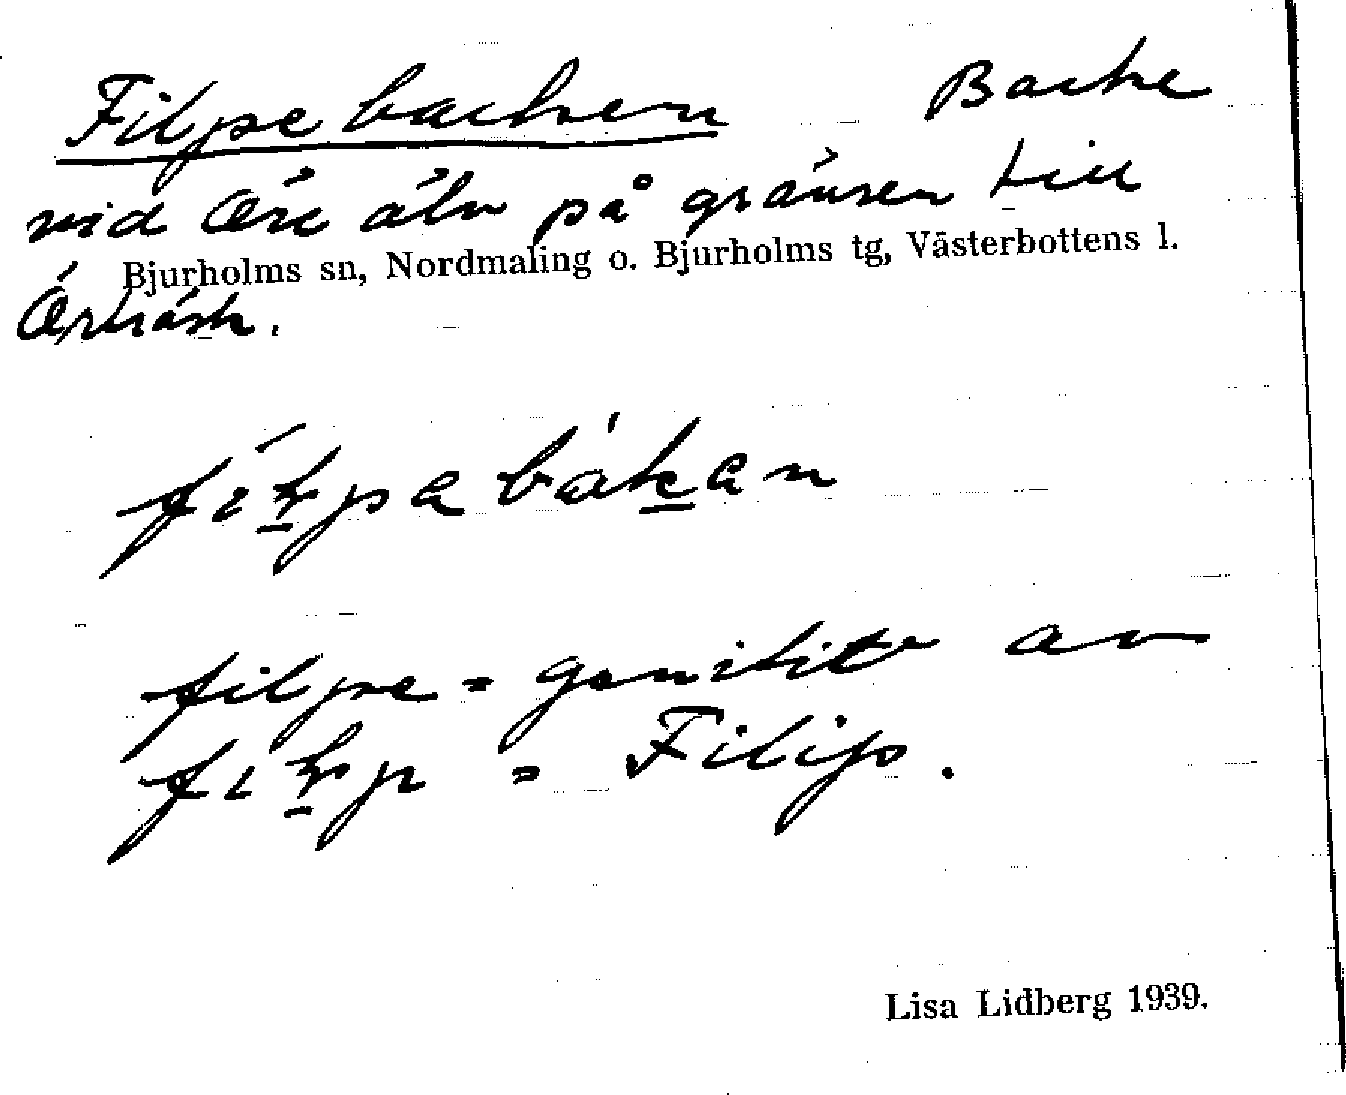 Filpebacken Backe
vid Öre älv på gränsen till
Bjurholms sn, Nordmaling o. Bjurholms tg, Västerbottens l.
Örträsk.
filpe = genitiv av
= Filip.
Lisa Lidberg 1939.